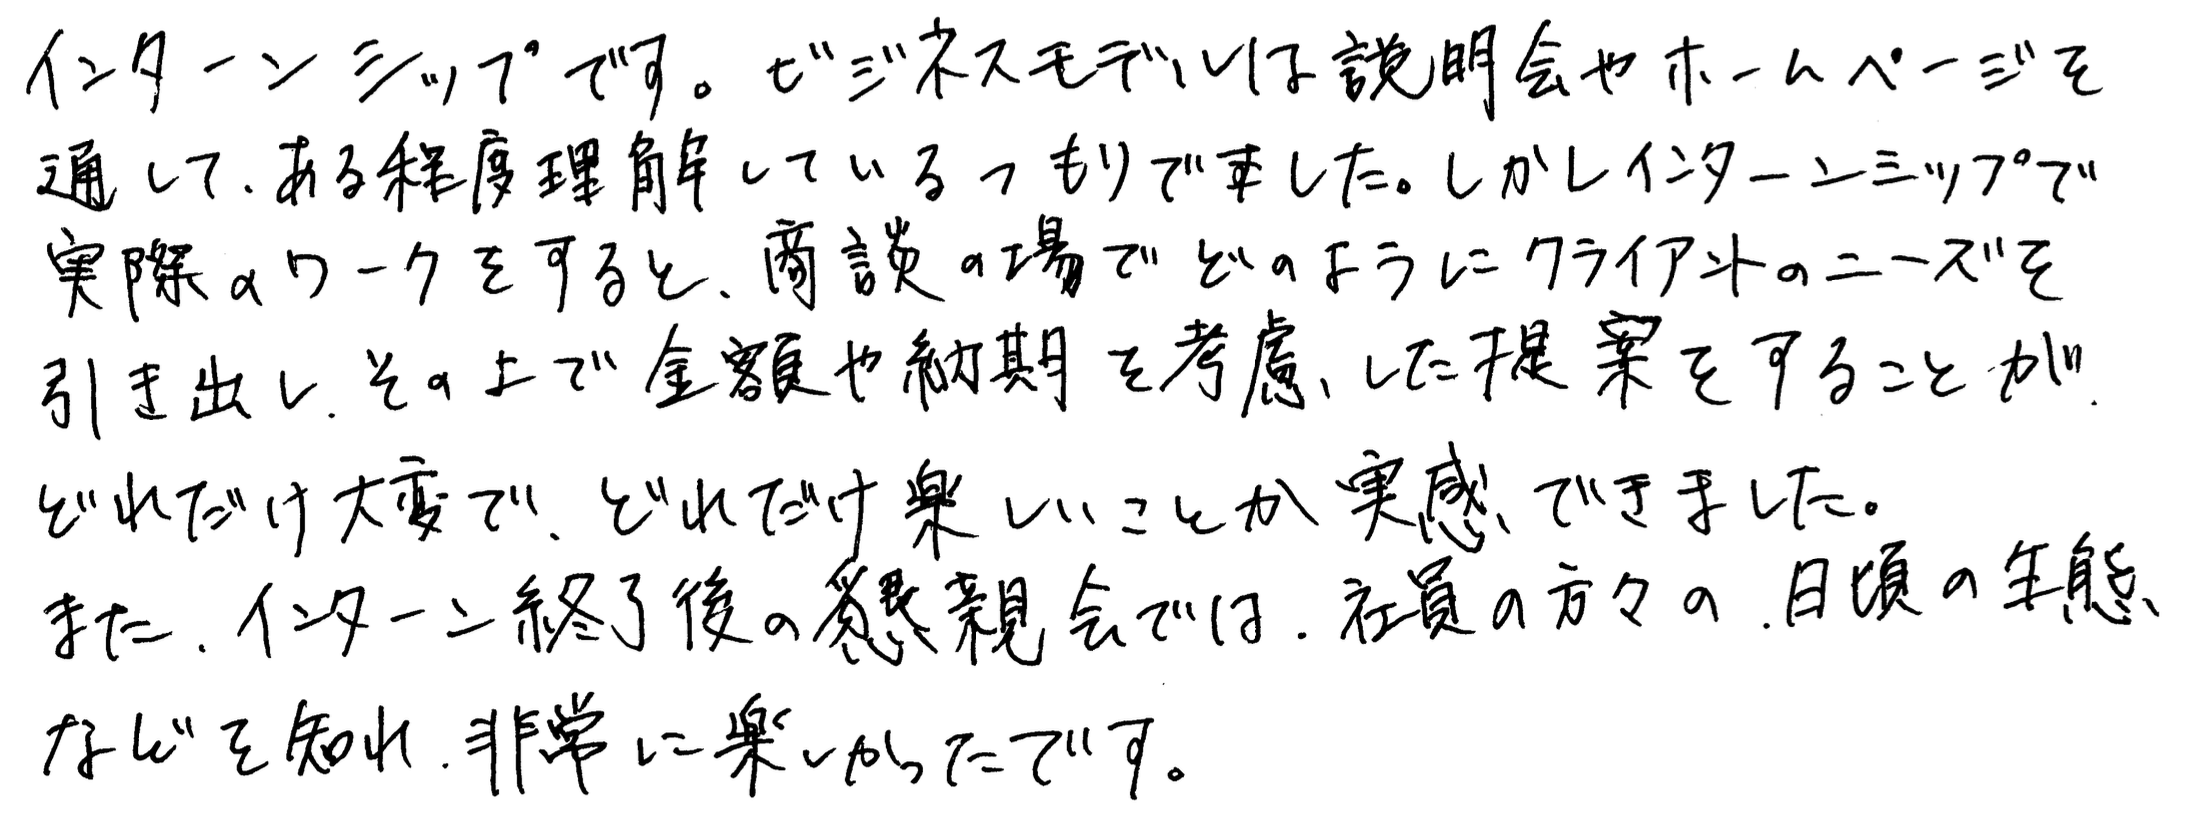 インターンシップです。ビジネスモデルは説明会やホームページを
通して、ある程度理解しているつもりでました。しかしインターンシップで
実際のワークをすると、商談の場でどのようにクライアントのニーズを
引き出し、その上で金額や納期を考慮した提案をすることが、
どれだけ大変で、どれだけ楽しいことか実感できました。
また、インターン終了後の懇親会では、社員の方々の、日頃の生態
などを知れ、非常に楽しかったです。